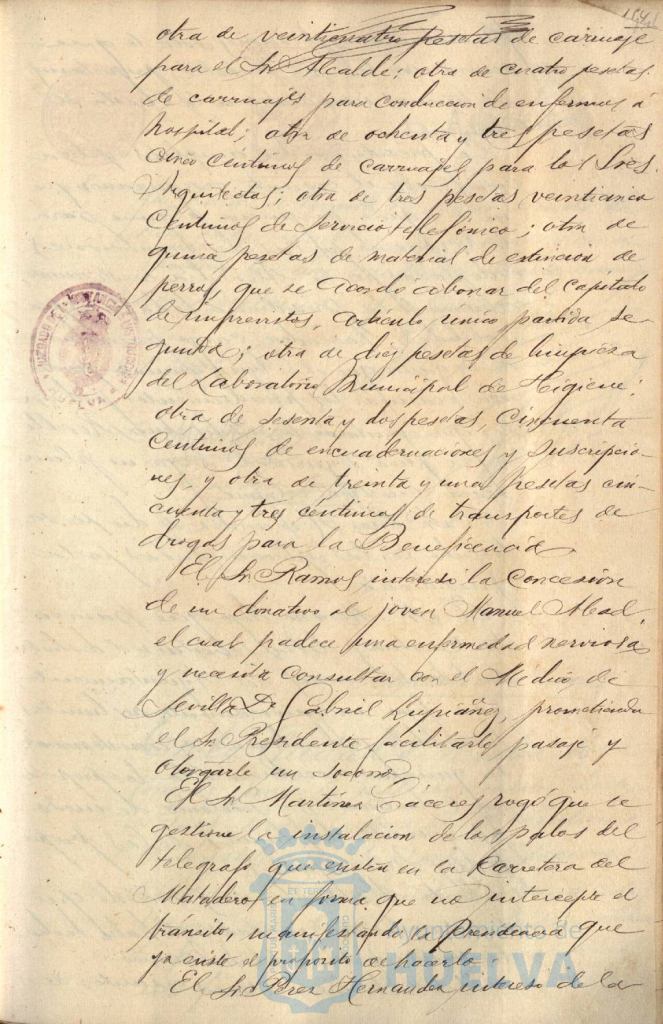 otra de veinticuatro pesetas de carruaje
para el Sr. Alcalde; otra de cuatro pesetas
de carruajes para conduccion de enfermos á
hospital; otra de ochenta y tres pesetas
cinco centimos de carruajes para los Sres.
Arquitectos; otra de tres pesetas veinticinco
centimos de servicio telefónico; otra de
quince pesetas de material de extincion de
perros, que se acordó abonar del Capítulo
de imprevistos, artículo unico partida se-
gunda; otra de diez pesetas de limpieza
del Laboratorio Municipal de Higiene;
otra de sesenta y dos pesetas, cincuenta
centimos de encuadernaciones y suscripcio-
nes, y otra de treinta y una pesetas cin-
cuenta y tres céntimos de transportes de
drogas para la Beneficencia.
El Sr. Ramos interesó la concesión
de un donativo al joven Manuel Abad,
el cual padece una enfermedad nerviosa
y necesita consultar con el Medico de
Sevilla D. Gabriel Lupiáñez, prometiendo
el Sr. Presidente facilitarle pasaje y
otorgarle un socorro.
El Sr. Martinez Cáceres rogó que se
gestione la instalacion de los palos del
telegrafo que existen en la Carretera del
Matadero en forma que no intercepte el
tránsito, manifestando la Presidencia que
ya existe el propósito de hacerlo.
El Sr. Perez Hernandez interesó de la
HUELVA
Ayuntamiento de
HUELVA